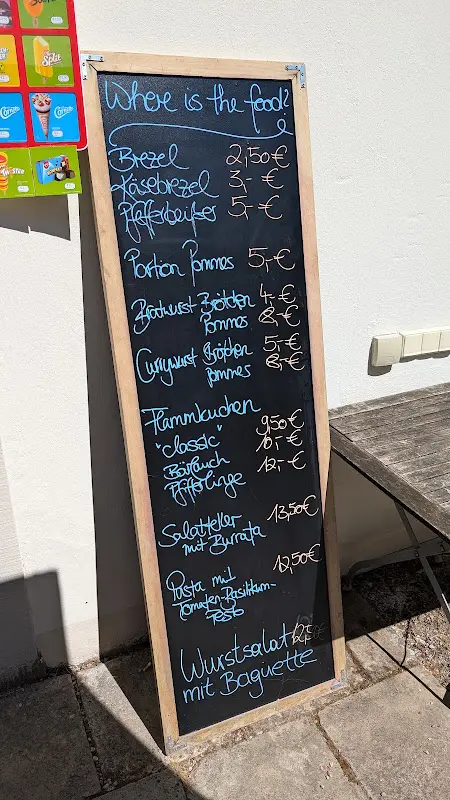 Split
Twister
Where is the food?
Brezel 2,50€
Käsebrezel 3,-€
Pfefferbeißer 5,-€
Portion Pommes 5,-€
Bratwurst Brötchen 4,-€
Pommes 8,-€
Currywurst Brötchen 5,-€
Pommes 8,-€
Flammkuchen
"classic" 9,50€
Bärlauch 10,-€
Pfifferlinge 12,-€
Salatteller 13,50€
mit Burrata
Pasta mit 12,50€
Tomaten-Basilikum-
Pesto
Wurstsalat
mit Baguette